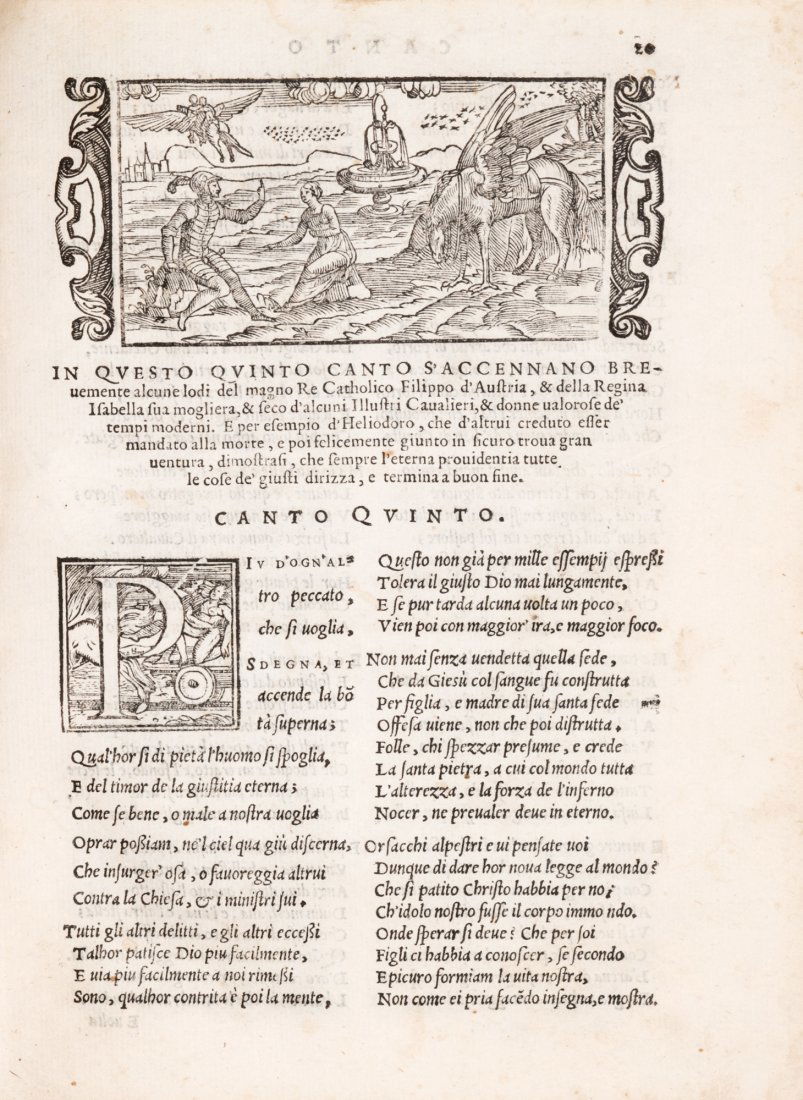 20
IN QVESTO QVINTO CANTO S'ACCENNANO BRE-
uemente alcune lodi del magno Re Catholico Filippo d'Auſtria, & della Regina
Iſabella ſua mogliera, & ſeco d'alcuni Illuſtri Caualieri, & donne ualoroſe de'
tempi moderni. E per eſempio d'Heliodoro, che d'altrui creduto eſſer
mandato alla morte, e poi felicemente giunto in ſicuro troua gran
uentura, dimoſtraſi, che ſempre l'eterna prouidentia tutte
le coſe de' giuſti dirizza, e termina a buon fine.
CANTO QVINTO.
PIV D'OGN'AL-
tro peccato,
che ſi uoglia,
SDEGNA, ET
accende la bō
tà ſuperna;
Qual'hor ſi di pietà l'huomo ſi ſpoglia,
E del timor de la giuſtitia eterna;
Come ſe bene, o male a noſtra uoglia
Oprar poßiam, ne'l ciel qua giù diſcerna,
Che inſurger' oſa, o fauoreggia altrui
Contra la Chieſa, & i miniſtri ſui.
Tutti gli altri delitti, e gli altri ecceßi
Talhor patiſce Dio piu facilmente,
E uia piu facilmente a noi rimeßi
Sono, qualhor contrita è poi la mente,
Queſto non già per mille eſſempij eſpreßi
Tolera il giuſto Dio mai lungamente,
E ſe pur tarda alcuna uolta un poco,
Vien poi con maggior' ira, e maggior foco.
Non mai ſenza uendetta quella ſede,
Che da Gieſù col ſangue fu conſtrutta
Per figlia, e madre di ſua ſanta fede
Offeſa uiene, non che poi diſtrutta.
Folle, chi ſpezzar preſume, e crede
La ſanta pietra, a cui col mondo tutta
L'alterezza, e la forza de l'inferno
Nocer, ne preualer deue in eterno.
Orſacchi alpeſtri e ui penſate uoi
Dunque di dare hor noua legge al mondo?
Che ſi patito Chriſto habbia per noi
Ch'idolo noſtro fuſſe il corpo immondo.
Onde ſperar ſi deue? Che per ſoi
Figli ci habbia a conoſcer, ſe ſecondo
Epicuro formiam la uita noſtra,
Non come ei pria facēdo inſegna, e moſtra.
E uolta